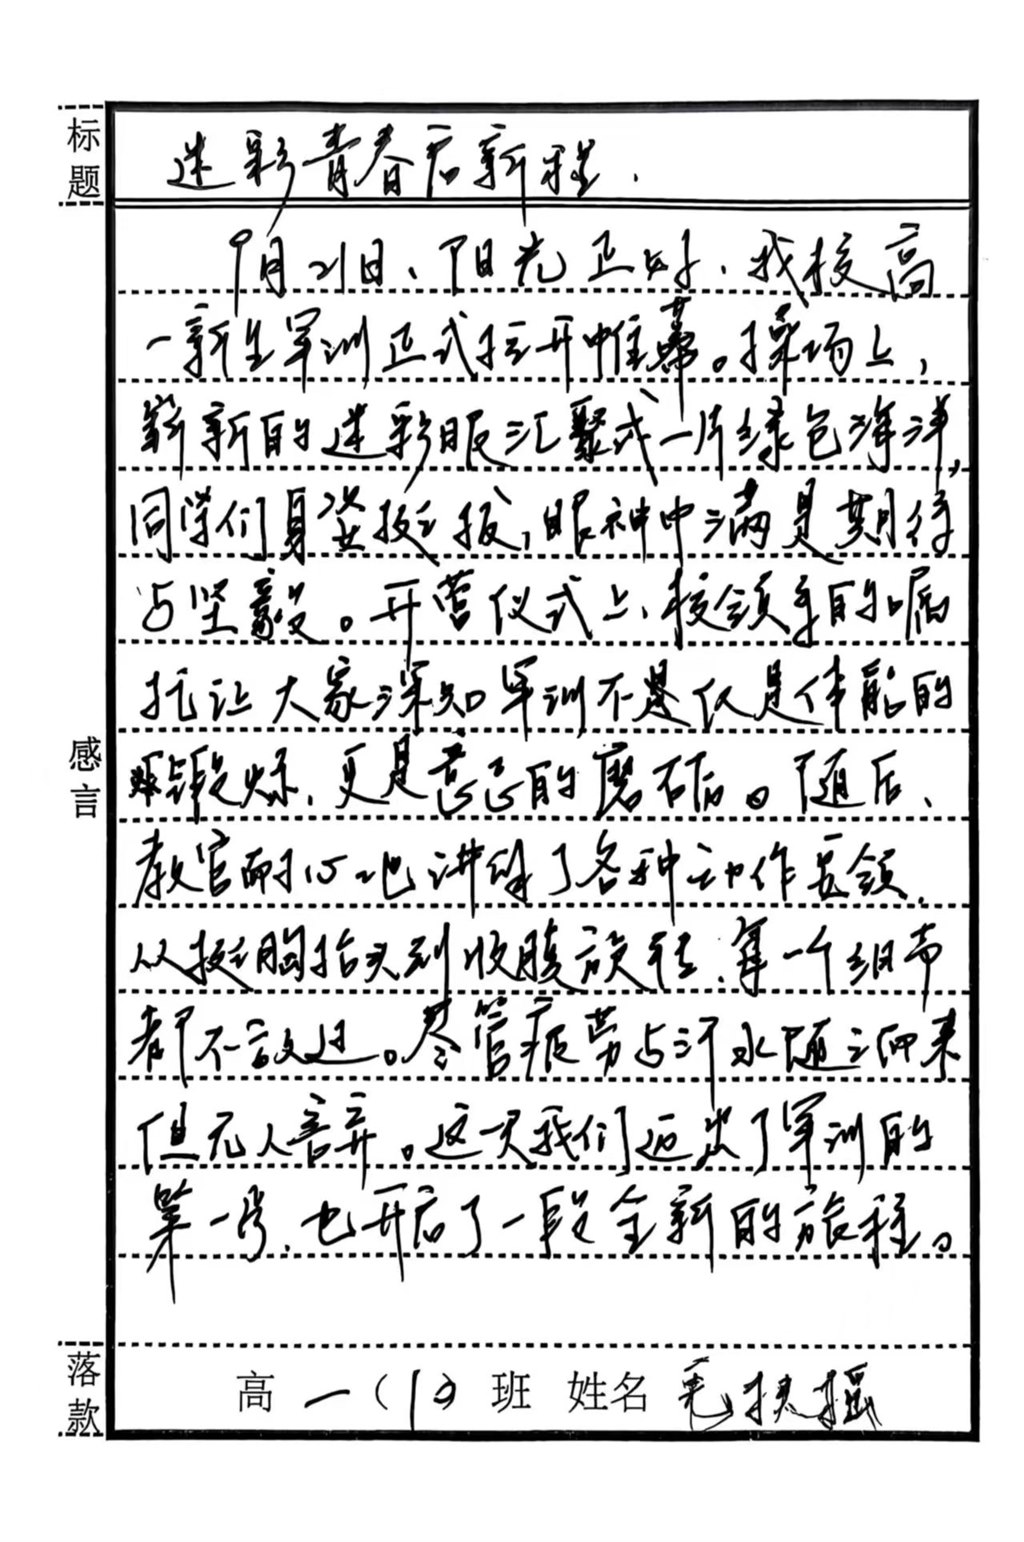 标题
迷彩青春启新程.
9月21日、阳光正好、我校高
一新生军训正式拉开帷幕。操场上,
崭新的迷彩服汇聚成一片绿色海洋,
同学们身姿挺拔,眼神中满是期待
与坚毅。开营仪式上、校领导的嘱
托让大家深知军训不是仅是体能的
锻炼、更是意志的磨砺。随后、
教官耐心地讲解了各种动作要领、
从挺胸抬头到收腹放松、每一个细节
都不放过。尽管疲劳与汗水随之而来
但无人言弃。这一天我们迈出了军训的
第一步、也开启了一段全新的旅程。
感言
落款
高一(1)班 姓名 毛扶摇